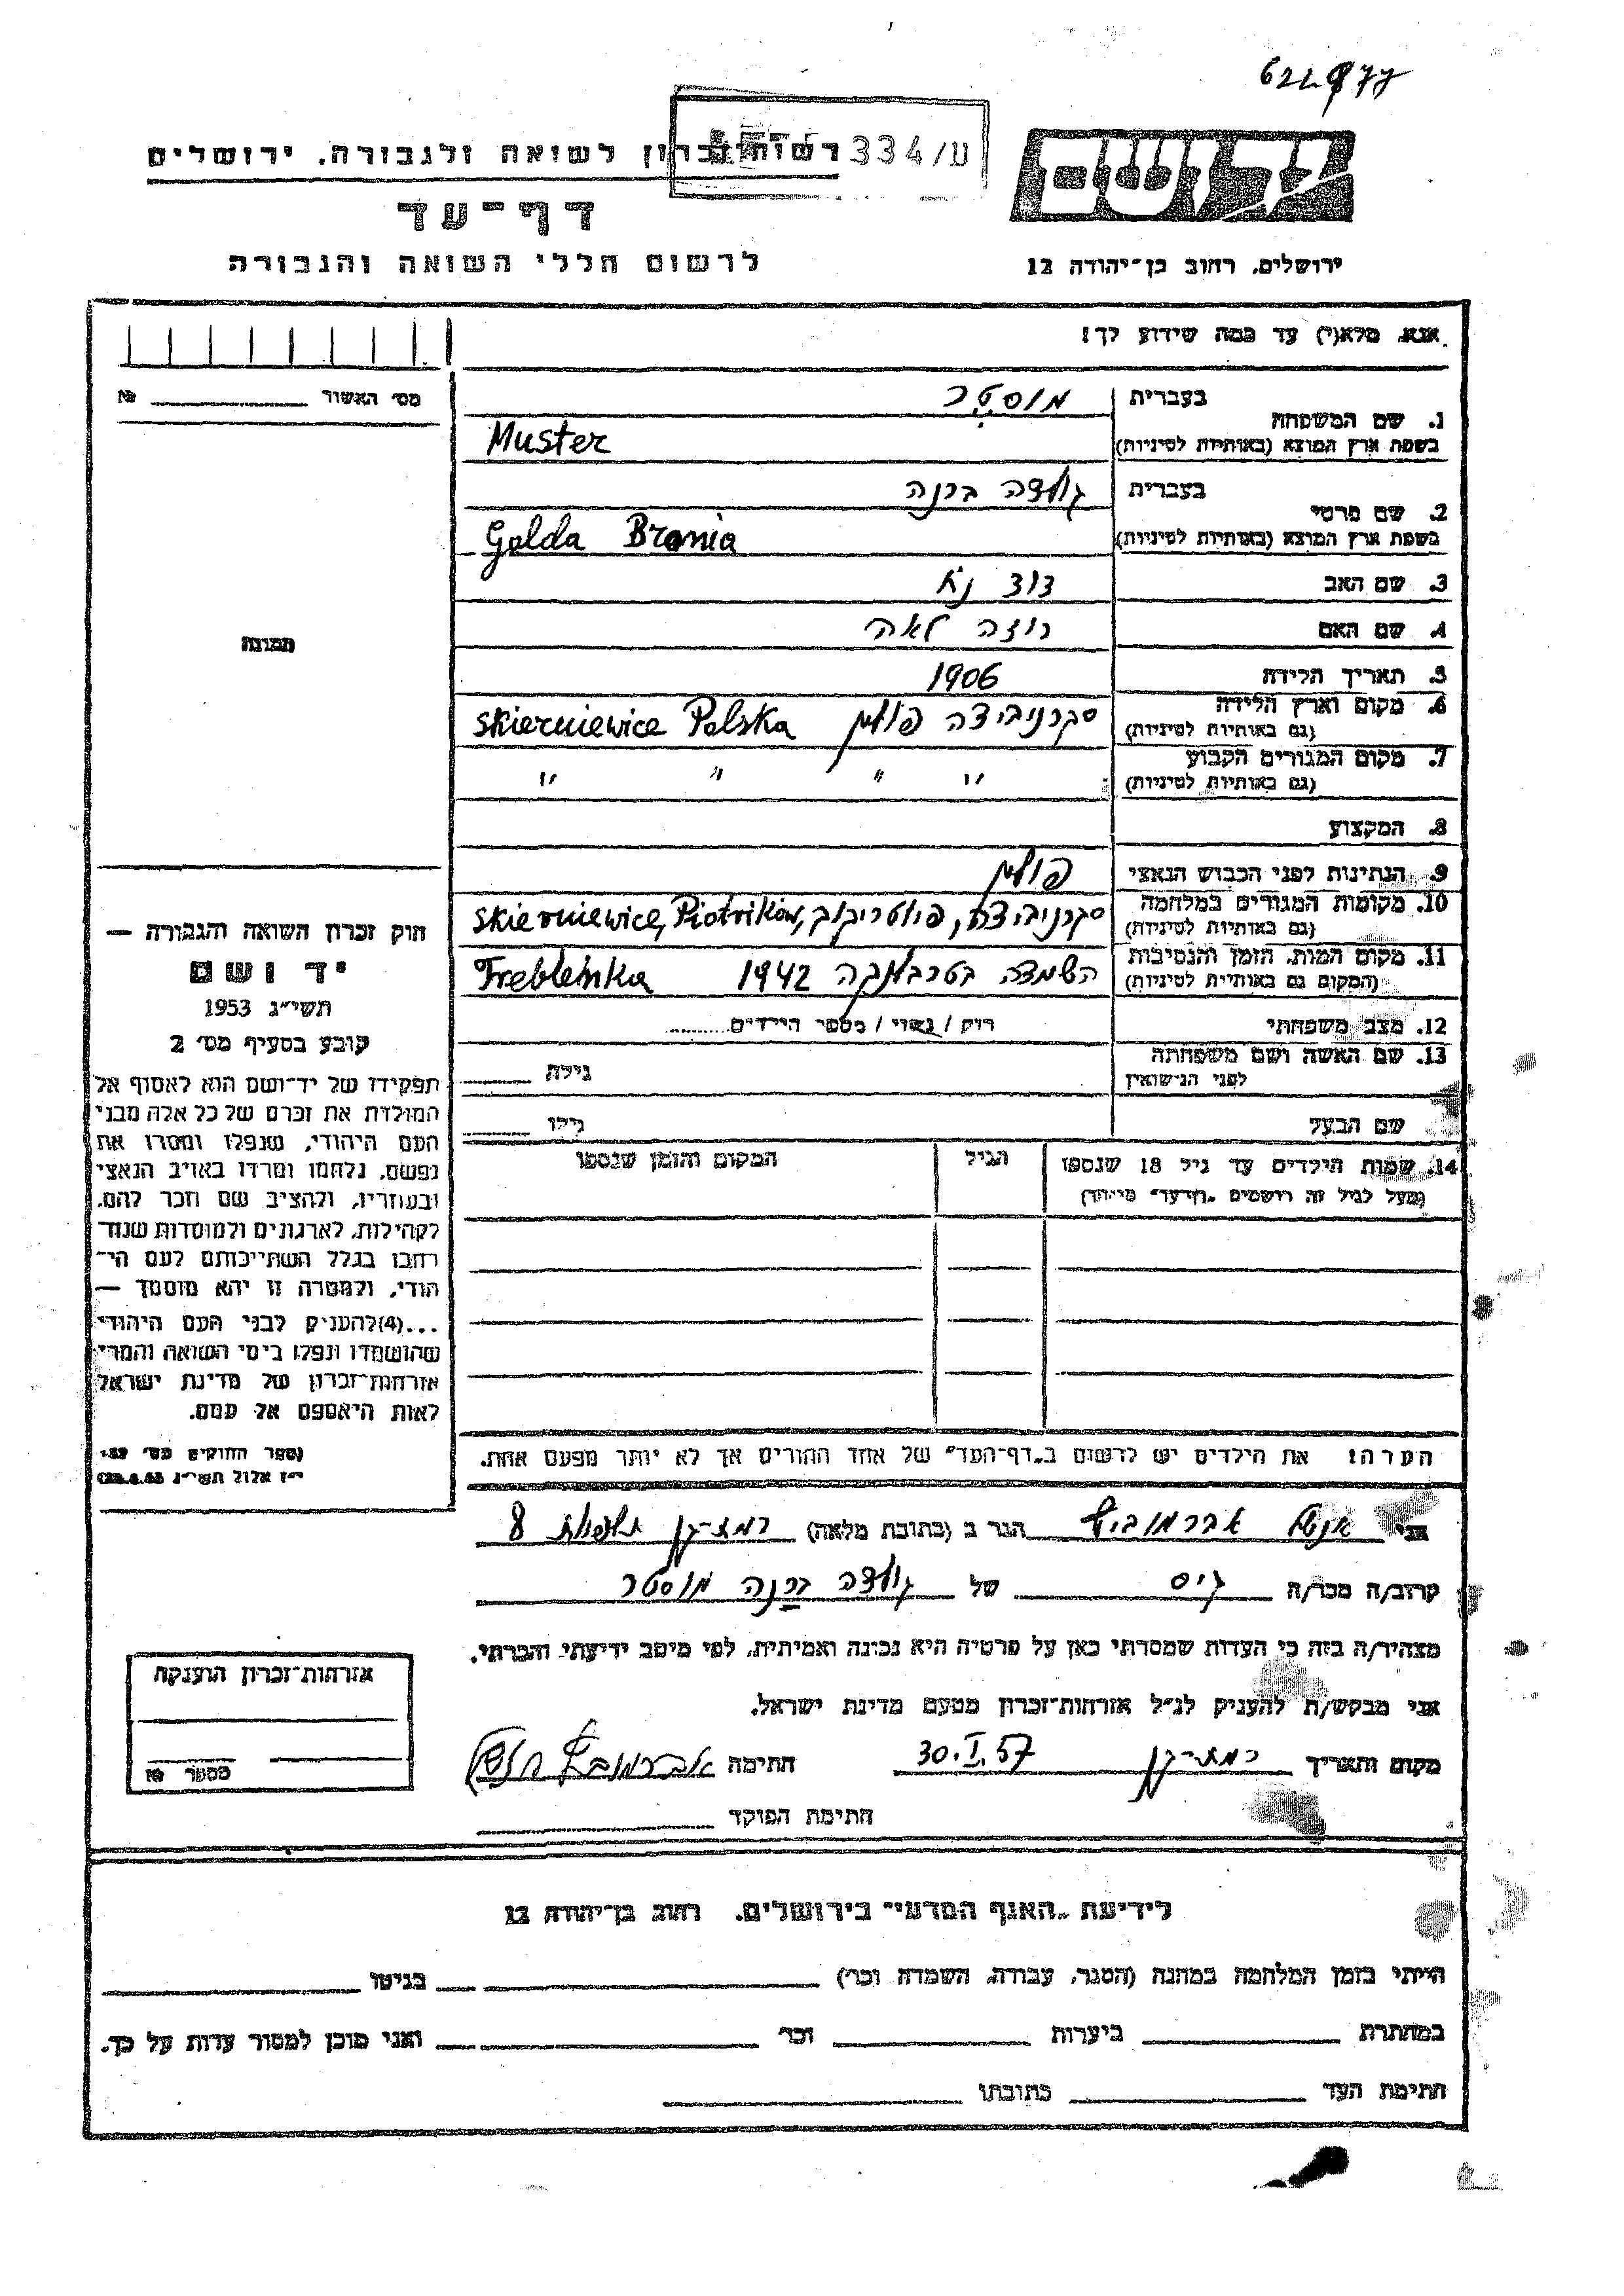 622977
334/ע
רשות זכרון לשואה ולגבורה, ירושלים
יד ושם
דף-עד
לרשום חללי השואה והגבורה
ירושלים, רחוב בן-יהודה 12
אנא, מלא(י) עד כמה שידוע לך!
מס' האשור № ________
1. שם המשפחה בעברית מוסטר
בשפת ארץ המוצא (באותיות לטיניות) Muster
2. שם פרטי בעברית גולדה ברנה
בשפת ארץ המוצא (באותיות לטיניות) Golda Brania
3. שם האב דוד
4. שם האם רוזה לאה
5. תאריך הלידה 1906
6. מקום וארץ הלידה סקרניביצה פולין Skierniewice Polska
(גם באותיות לטיניות)
7. מקום המגורים הקבוע " " " "
(גם באותיות לטיניות)
8. המקצוע
9. הנתינות לפני הכבוש הנאצי פולין
10. מקומות המגורים במלחמה סקרניביצה, פיוטריקוב, Skierniewice, Piotrików
(גם באותיות לטיניות)
11. מקום המות, הזמן והנסיבות השמדה בטרבלינקה 1942 Treblinka
(המקום גם באותיות לטיניות)
12. מצב משפחתי רוק / נשוי / מספר הילדים
13. שם האשה ושם משפחתה
לפני הנישואין גילה
שם הבעל גילו
14. שמות הילדים עד גיל 18 שנספו הגיל המקום והזמן שנספו
(מעל לגיל זה רושמים "דף-עד" מיוחד)
הערה: את הילדים יש לרשום ב"דף-העד" של אחד ההורים אך לא יותר מפעם אחת.
תמונה
חוק זכרון השואה והגבורה —
יד ושם
תשי"ג 1953
קובע בסעיף מס' 2
תפקידו של יד-ושם הוא לאסוף אל
המולדת את זכרם של כל אלה מבני
העם היהודי, שנפלו ומסרו את
נפשם, נלחמו ומרדו באויב הנאצי
ובעוזריו, ולהציב שם וזכר להם,
לקהילות, לארגונים ולמוסדות שנח-
רבו בגלל השתייכותם לעם הי-
הודי, ולמטרה זו יהא מוסמך —
...(4)להעניק לבני העם היהודי
שהושמדו ונפלו בימי השואה והמרי
אזרחות-זכרון של מדינת ישראל
לאות היאספם אל עמם.
(ספר החוקים מס' 132
י"ז אלול תשי"ג 28.8.53)
אני אברמוביץ הגר ב (כתובת מלאה) רמת-גן 8
קרוב/ה מכר/ה גיס של גולדה ברנה מוסטר
מצהיר/ה בזה כי העדות שמסרתי כאן על פרטיה היא נכונה ואמיתית, לפי מיטב ידיעתי והכרתי.
אני מבקש/ת להעניק לנ"ל אזרחות-זכרון מטעם מדינת ישראל.
מקום ותאריך רמת-גן 30.I.57 חתימה אברמוביץ
חתימת הפוקד
אזרחות-זכרון הוענקה
מספר №
לידיעת "האגף המדעי" בירושלים, רחוב בן-יהודה 12
הייתי בזמן המלחמה במחנה (הסגר, עבודה, השמדה וכו') בגיטו
במחתרת ביערות וכו' ואני מוכן למסור עדות על כך.
חתימת העד כתובתו